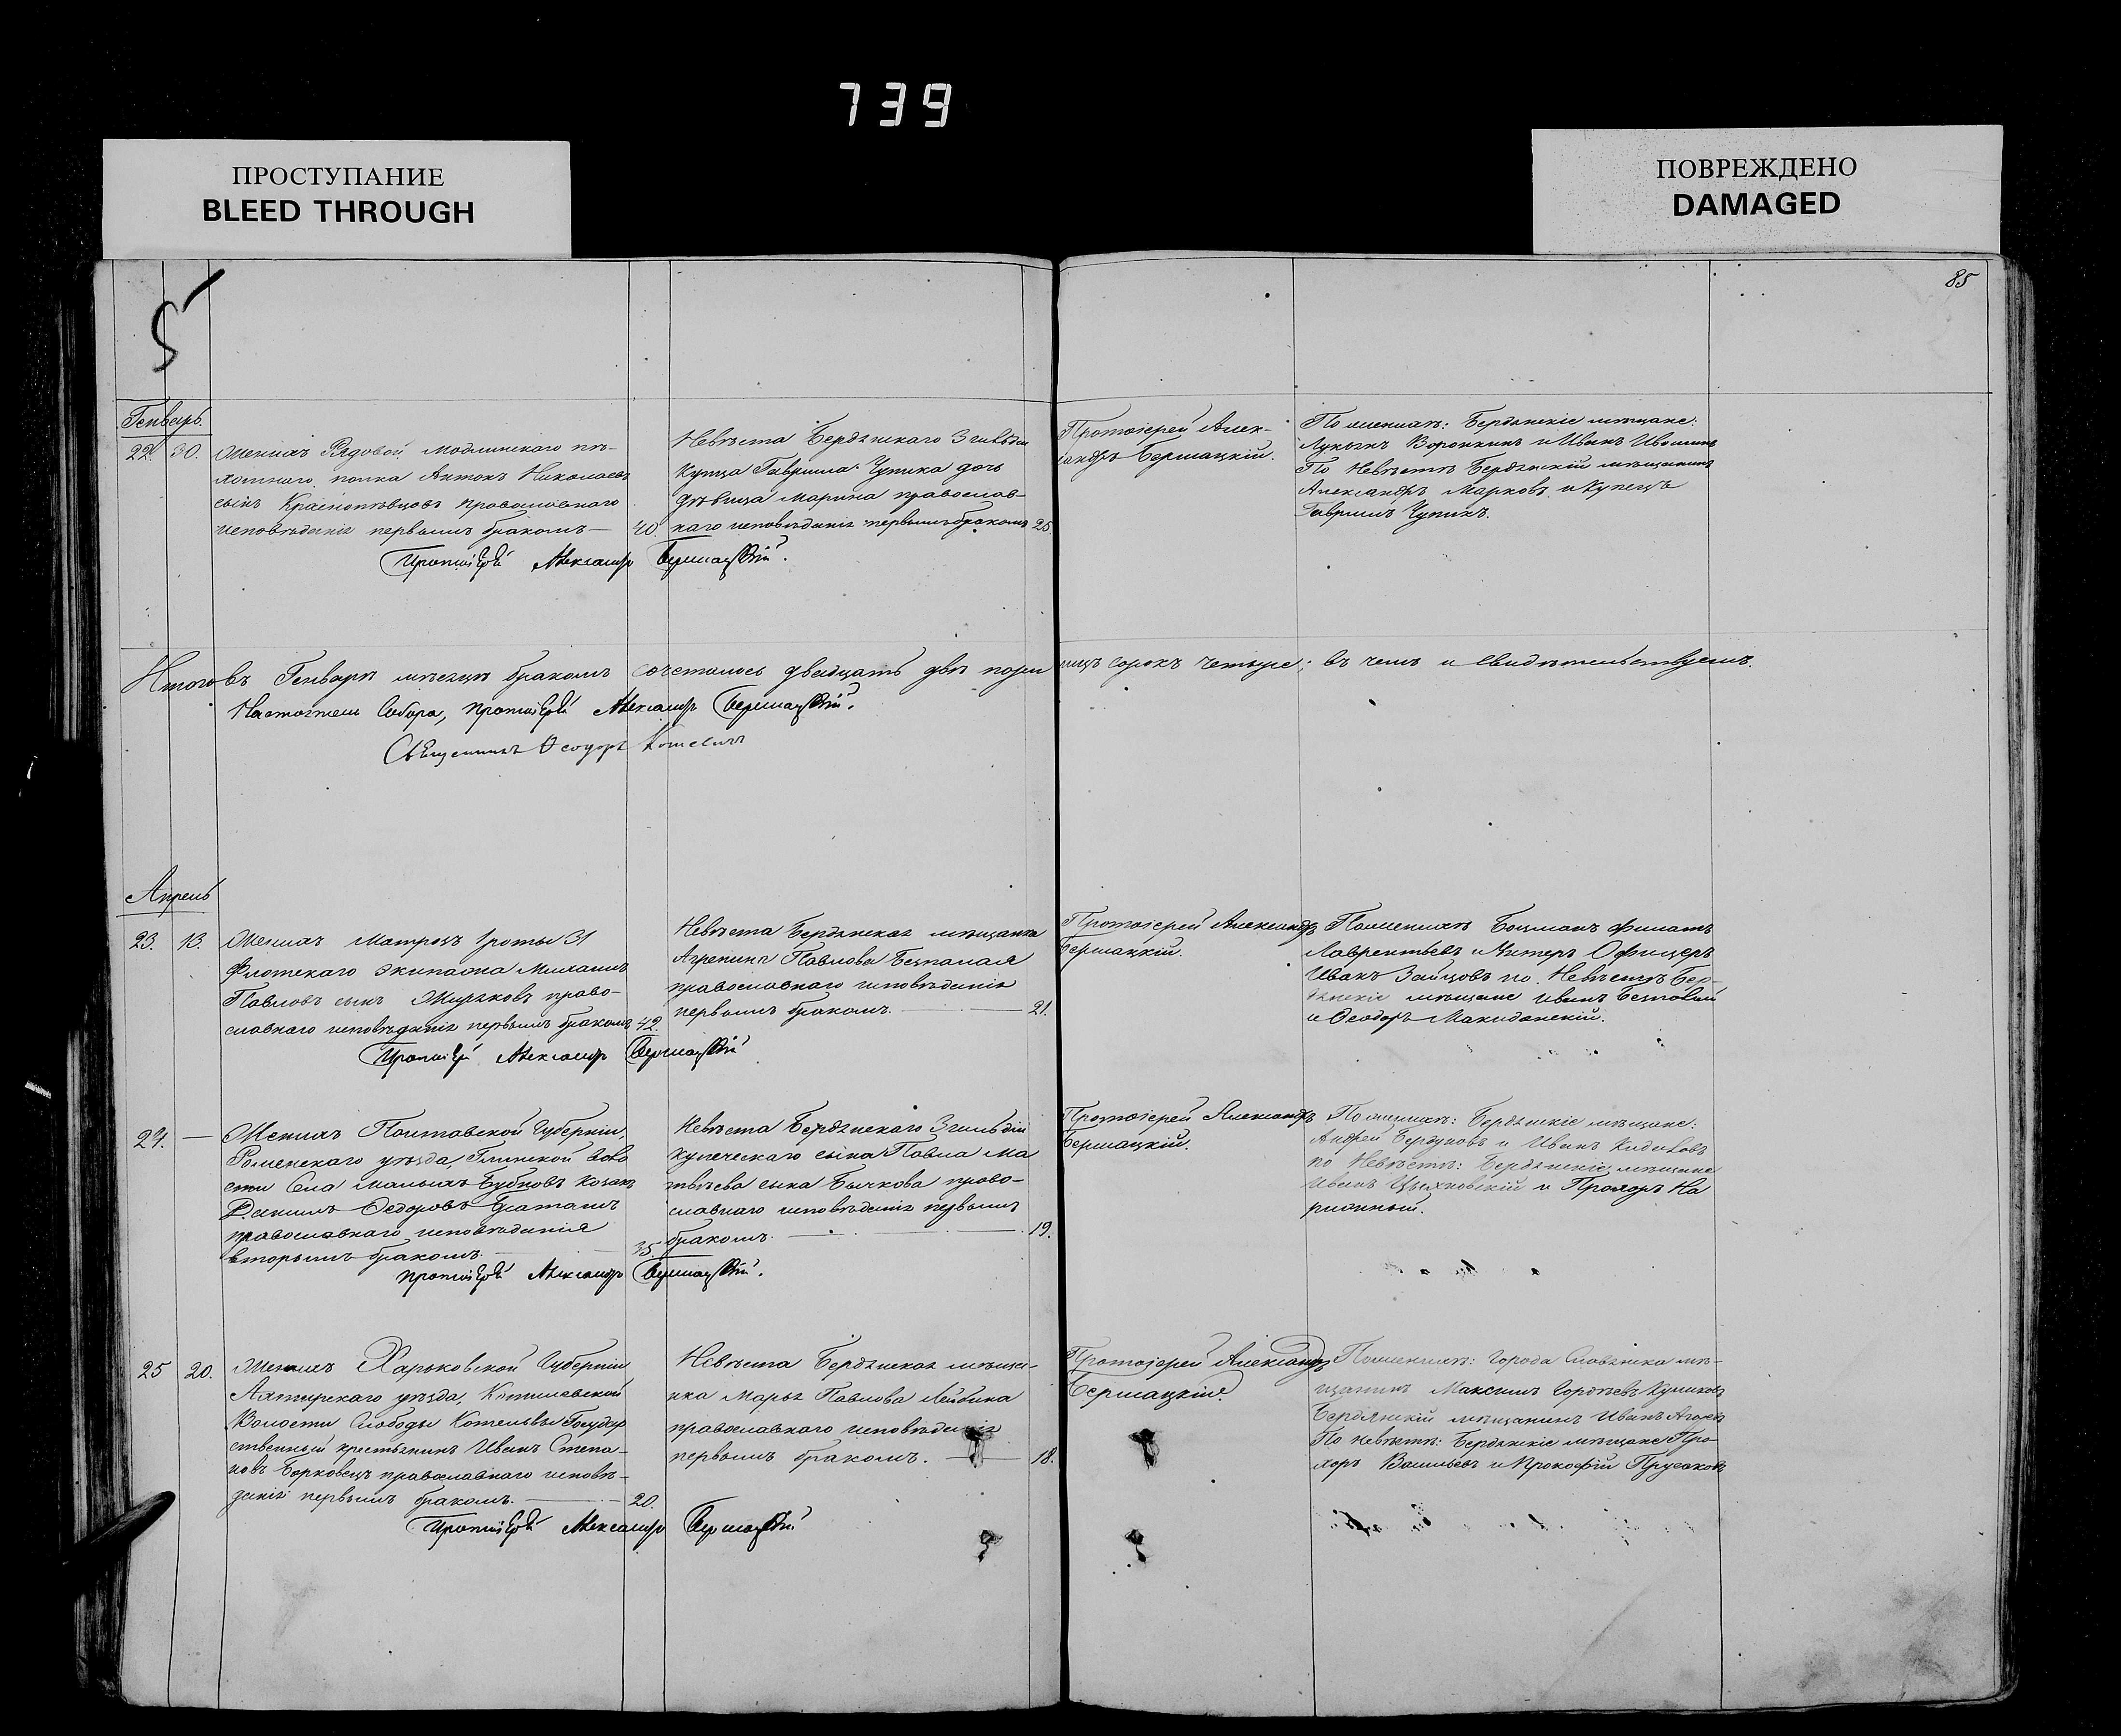 739
ПРОСТУПАНИЕ
BLEED THROUGH
ПОВРЕЖДЕНО
DAMAGED
85
5
Генварь.
22. 30.
Женихъ Рядовой Модлинскаго пѣ-
хотнаго полка Антонъ Николаевъ
сынъ Краснопѣвцовъ православнаго
исповѣданія первымъ бракомъ — 40.
Невѣста Бердянскаго 3 гильдіи
купца Гавриила Чупика дочь
дѣвица Марина православ-
наго исповѣданія первымъ бракомъ 25.
Протоіерей Алек-
сандръ Бершацкій.
По женихѣ: Бердянскіе мѣщане:
Лукьянъ Воронкинъ и Иванъ
По Невѣстѣ Бердянскій мѣщанинъ
Александръ Марковъ и купецъ
Гавриилъ Чупикъ.
Протоіерей Александръ Бершацкій.
Итого въ Генварѣ мѣсяцѣ бракомъ сочеталось двадцать двѣ пары лицъ сорокъ четыре; въ чемъ и свидѣтельствуемъ.
Настоятель Собора, Протоіерей Александръ Бершацкій.
Священникъ Ѳеодоръ
Апрель
23. 13.
Женихъ Матрозъ 1 роты 31
Флотскаго экипажа Михаилъ
Павловъ сынъ право-
славнаго исповѣданія первымъ бракомъ 42.
Невѣста Бердянская мѣщанка
Агрепина Павлова
православнаго исповѣданія
первымъ бракомъ. — 21.
Протоіерей Александръ
Бершацкій.
По женихѣ Боцманъ Филатъ
Лаврентьевъ и Унтеръ Офицеръ
Иванъ Зайцовъ по Невѣстѣ Бер-
дянскіе мѣщане Иванъ
и Ѳеодоръ Макидонскій.
Протоіерей Александръ Бершацкій
24. —
Женихъ Полтавской Губерніи,
Роменскаго уѣзда, Глинской Воло
сти Села Малыхъ Бубновъ козакъ
Даніилъ Ѳедоровъ
православнаго исповѣданія
вторымъ бракомъ. — 35.
Невѣста Бердянскаго 3 гильдіи
купеческаго сына Павла Ма
твѣева сына Бычкова право-
славнаго исповѣданія первымъ
бракомъ. — 19.
Протоіерей Александръ
Бершацкій.
По женихѣ: Бердянскіе мѣщане:
Андрей и Иванъ
по Невѣстѣ: Бердянскіе мѣщане
Иванъ и Прохоръ На
рижный.
Протоіерей Александръ Бершацкій.
25 20.
Женихъ Харьковской Губерніи
Ахтырскаго уѣзда, Котелевской
Волости Слободы Котельвы Государ
ственный крестьянинъ Иванъ Степа-
новъ Борковецъ православнаго исповѣ-
данія первымъ бракомъ. — 20.
Невѣста Бердянская мѣща-
нка Марья Павлова
православнаго исповѣданія
первымъ бракомъ. — 18.
Протоіерей Александръ
Бершацкій
По женихѣ: города Славянска мѣ-
щанинъ Максимъ Гордѣевъ
Бердянскій мѣщанинъ Иванъ
По невѣстѣ: Бердянскіе мѣщане Про-
хоръ Васильевъ и Прокофій
Протоіерей Александръ Бершацкій